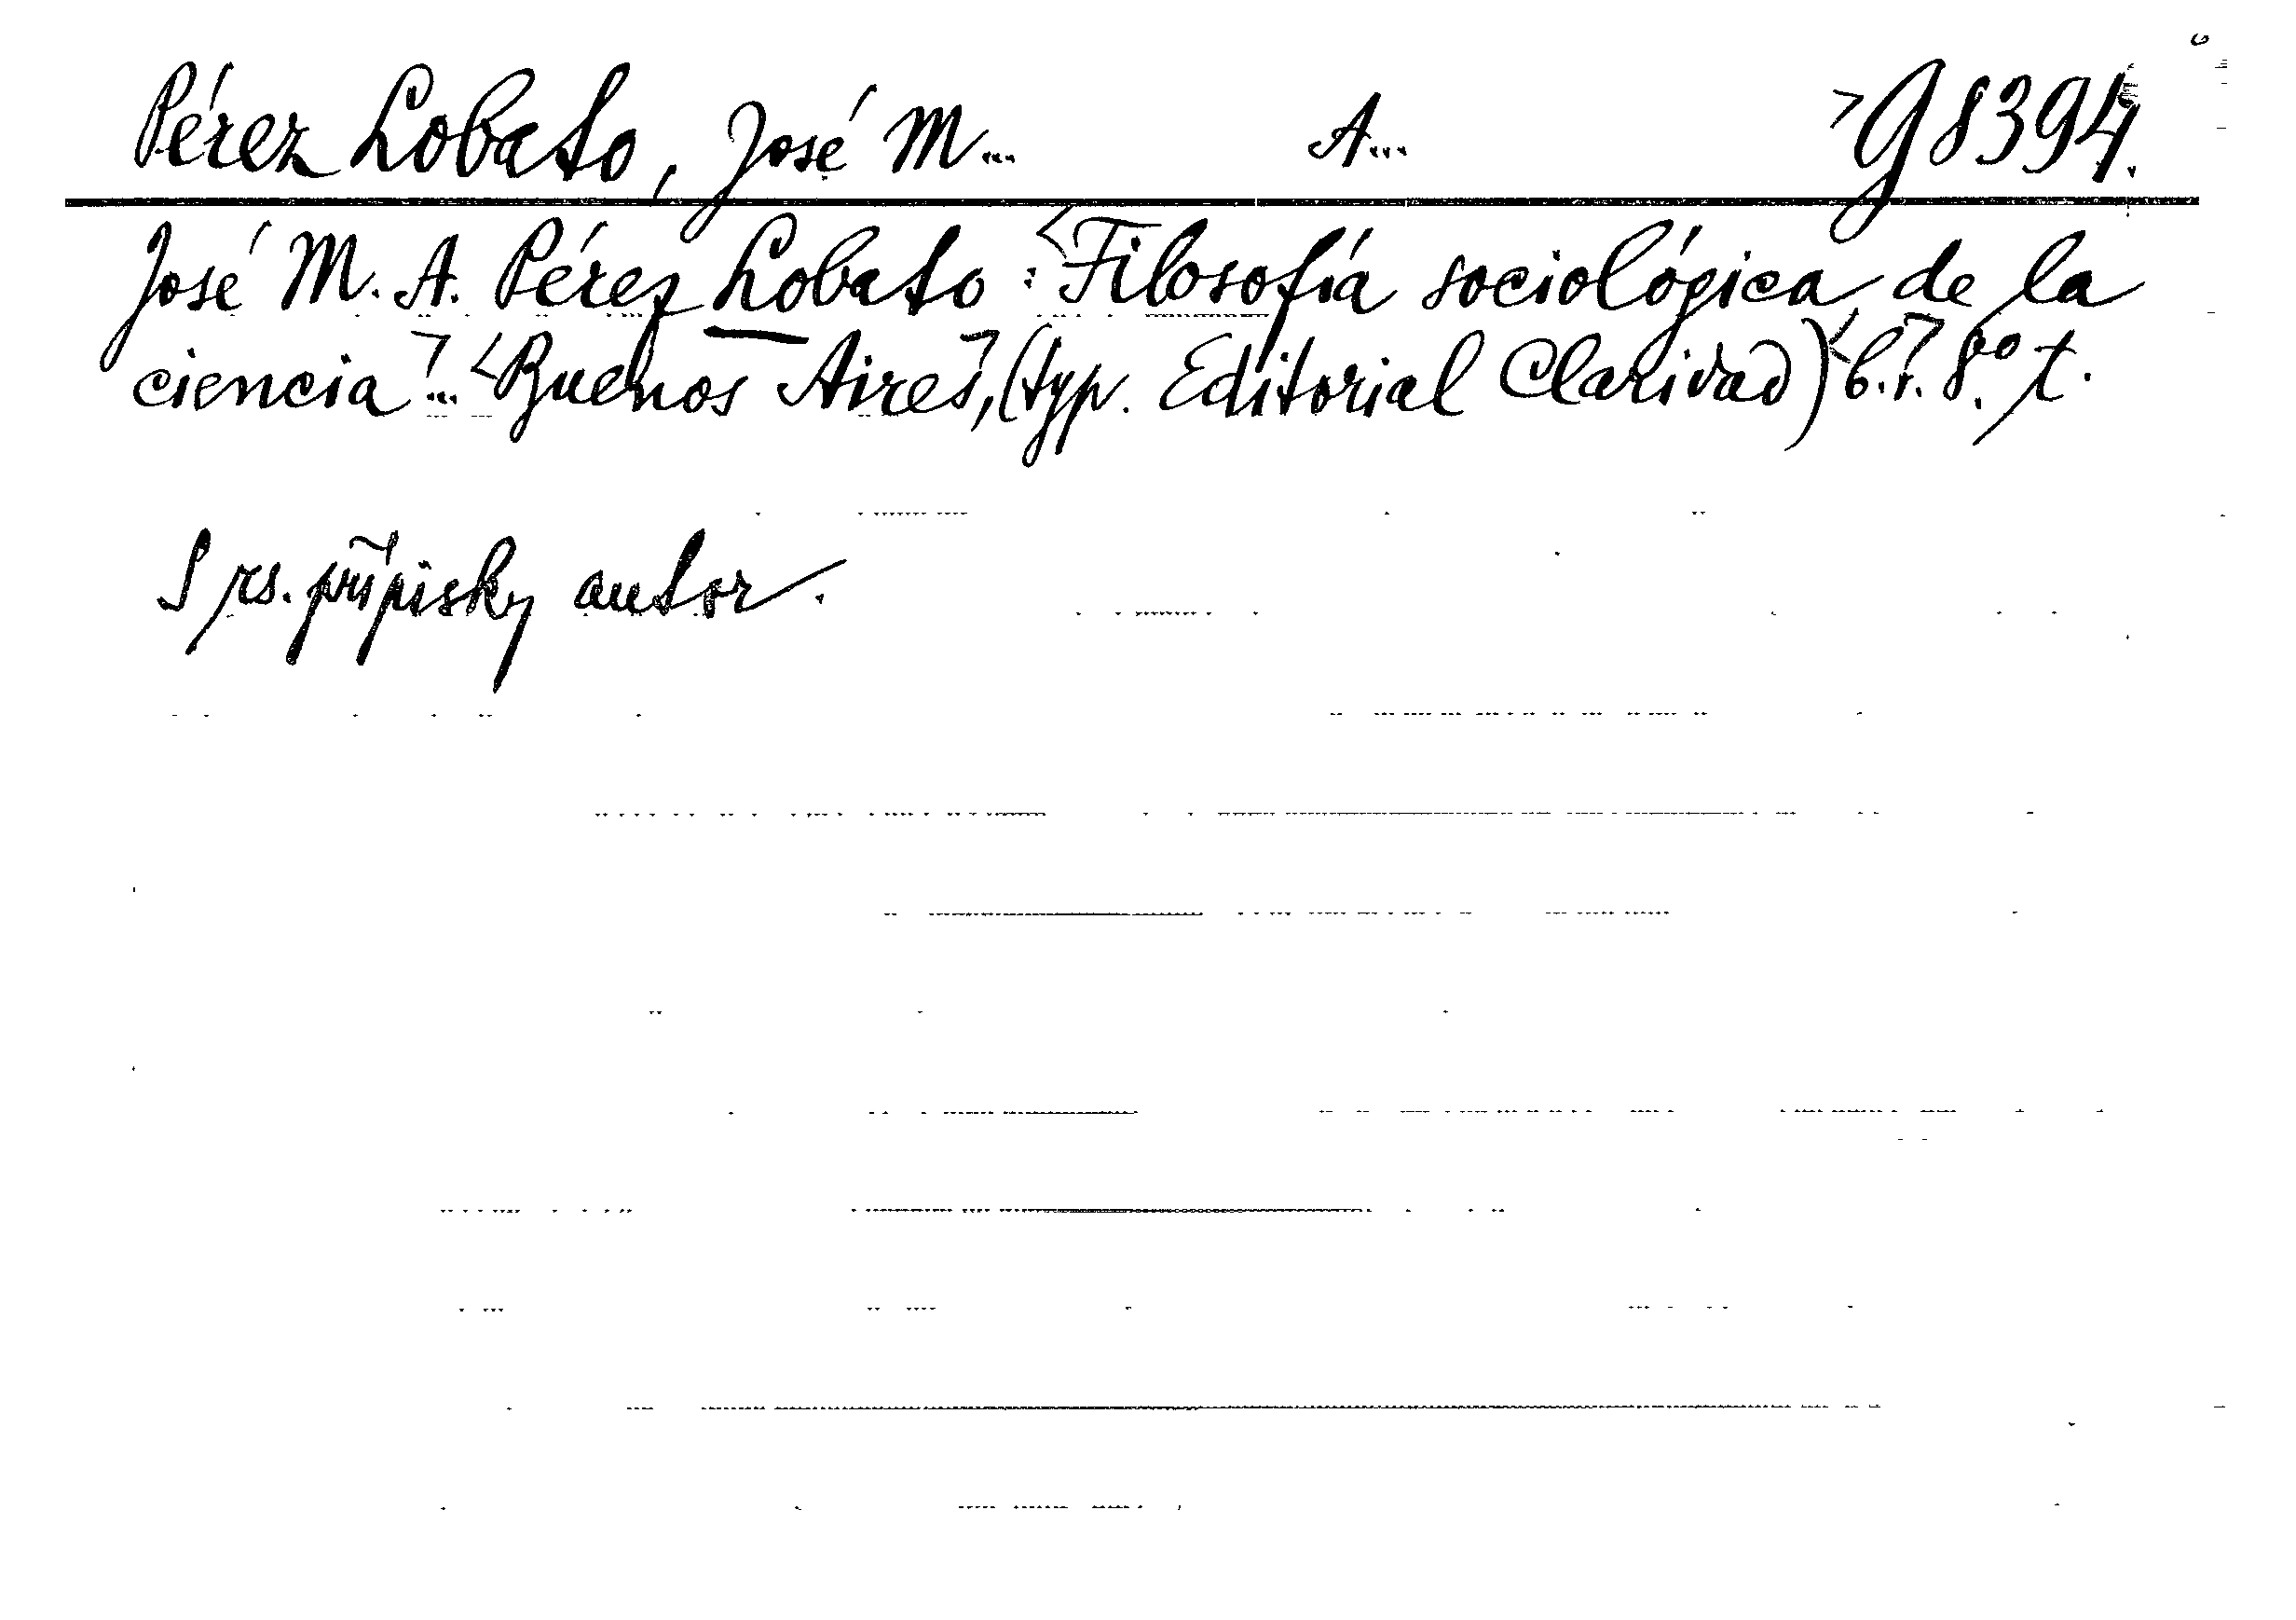 Pérez Lobato, José M... A... G 8394.
José M. A. Pérez Lobato: Filosofía sociológica de la
ciencia... Buenos Aires, (typ. Editorial Claridad) b.r. 8.° t.
S rs. přípisky autor.